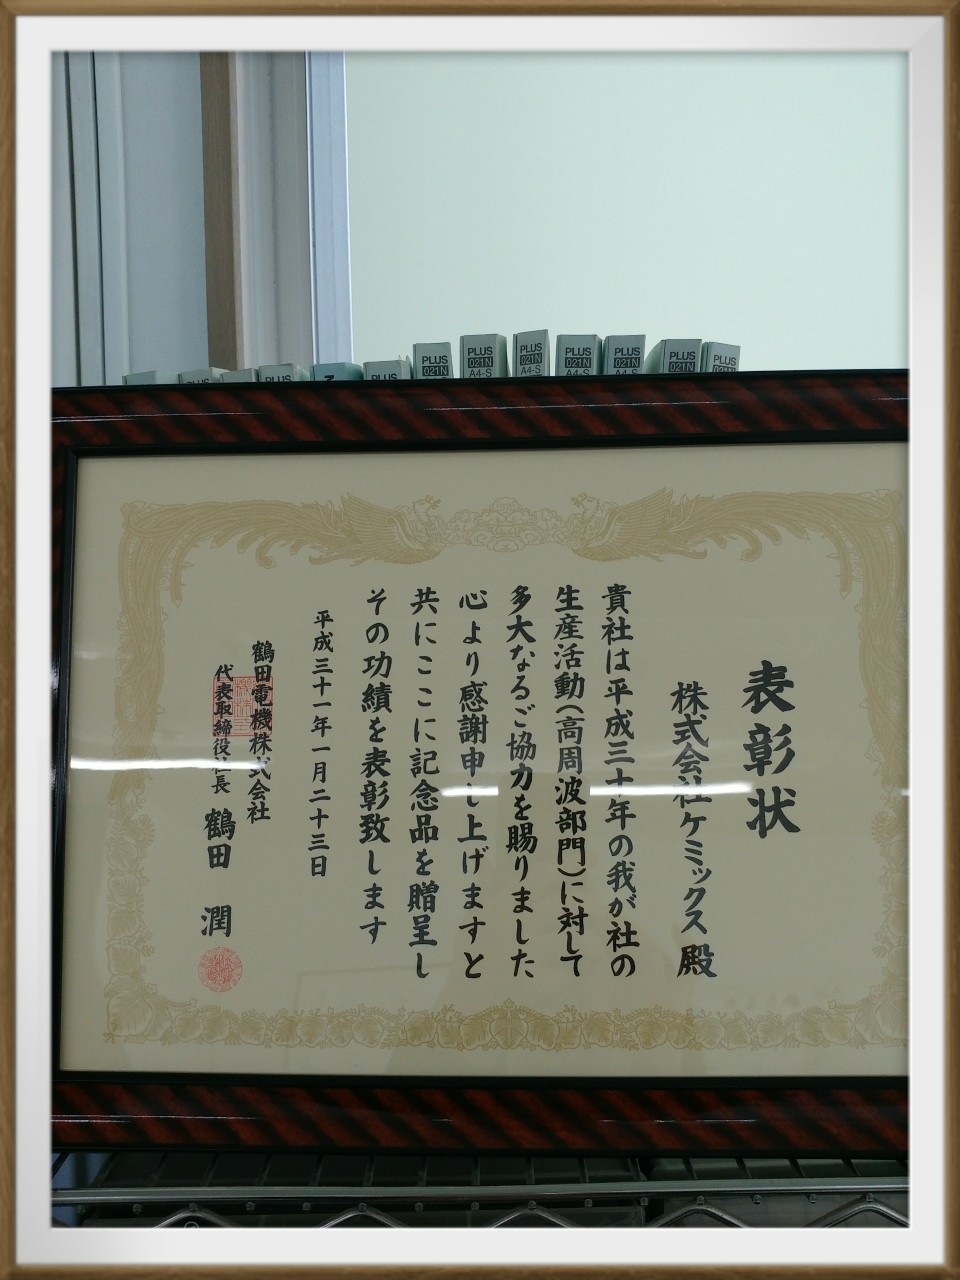 PLUS
PLUS
021N
PLUS
021N
A4-S
PLUS
021N
A4-S
PLUS
021N
A4-S
PLUS
021N
A4-S
PLUS
021N
PLUS
021N
表彰状
株式会社ケミックス殿
貴社は平成三十年の我が社の
生産活動(高周波部門)に対して
多大なるご協力を賜りました
心より感謝申し上げますと
共にここに記念品を贈呈し
その功績を表彰致します
平成三十一年一月二十三日
鶴田電機株式会社
代表取締役社長 鶴田 潤